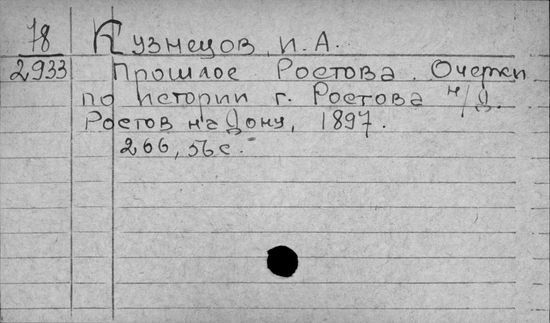 78 Кузнецов, И.А.
2933 Прошлое Ростова. Очерки
по истории г. Ростова н/Д.
Ростов на Дону, 1897.
266, 56 с.